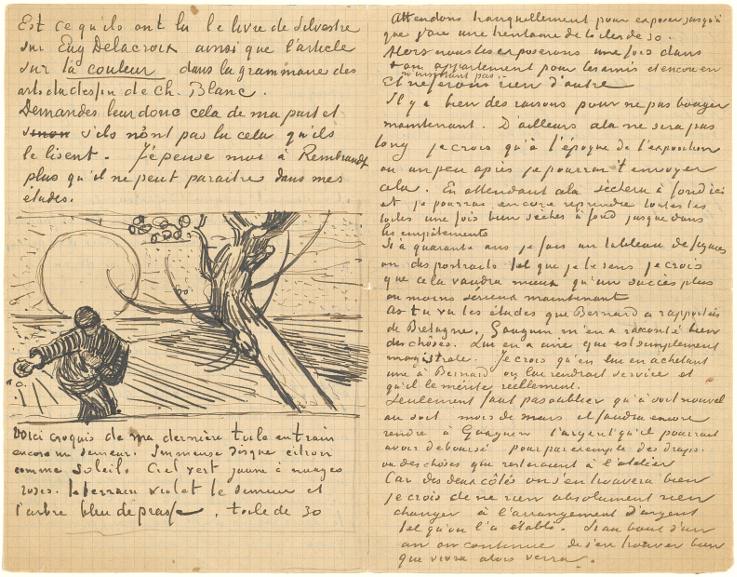 Est ce qu'ils ont lu le livre de Silvestre
sur Eug Delacroix ainsi que l'article
sur la couleur dans la grammaire des
arts du dessin de Ch. Blanc.
Demandes leur donc cela de ma part et
sinon s'ils n'ont pas lu cela qu'ils
le lisent. J'e pense moi à Rembrandt
plus qu'il ne peut paraitre dans mes
études.
Voici croquis de ma dernière toile en train
encore un semeur. Immense disque citron
comme soleil. Ciel vert jaune à nuages
roses. le terrain violet le semeur et
l'arbre bleu de prusse. toile de 30
Attendons tranquillement pour exposer jusqu'à
que j'aie une trentaine de toiles de 30.
Alors nous les exposerons une fois dans
ton appartement pour les amis et encore en
n'insistant pas.
Et ne ferons rien d'autre
Il y a bien des raisons pour ne pas bouger
maintenant. D'ailleurs cela ne sera pas
long je crois qu'à l'époque de l'exposition
ou un peu après je pourrai t'envoyer
cela. En attendant cela sechera à fond ici
et je pourrai encore reprendre toutes les
toiles une fois bien sèches à fond jusque dans
les empâtements
Si à quarante ans je fais un tableau de figures
ou des portraits tel que je le sens je crois
que cela vaudra mieux qu'un succès plus
ou moins serieux maintenant
As tu vu les études que Bernard a rapportées
de Bretagne, Gauguin m'en a raconté bien
des choses. Lui en a une que est simplement
magistrale. Je crois qu'en lui en achetant
une à Bernard on lui rendrait service et
qu'il le mérite reellement.
Seulement faut pas oublier qu'à soit nouvel
an soit mois de mars il faudra encore
rendre à Gauguin l'argent qu'il pourrait
avoir deboursé pour par exemple des draps.
ou des choses que resteraient à l'atelier
Car des deux côtés on s'en trouvera bien
je crois de ne rien absolument rien
changer à l'arrangement d'argent
tel qu'on l'a établi. Si au bout d'un
an on continue de s'en trouver bien
que vivra alors verra.